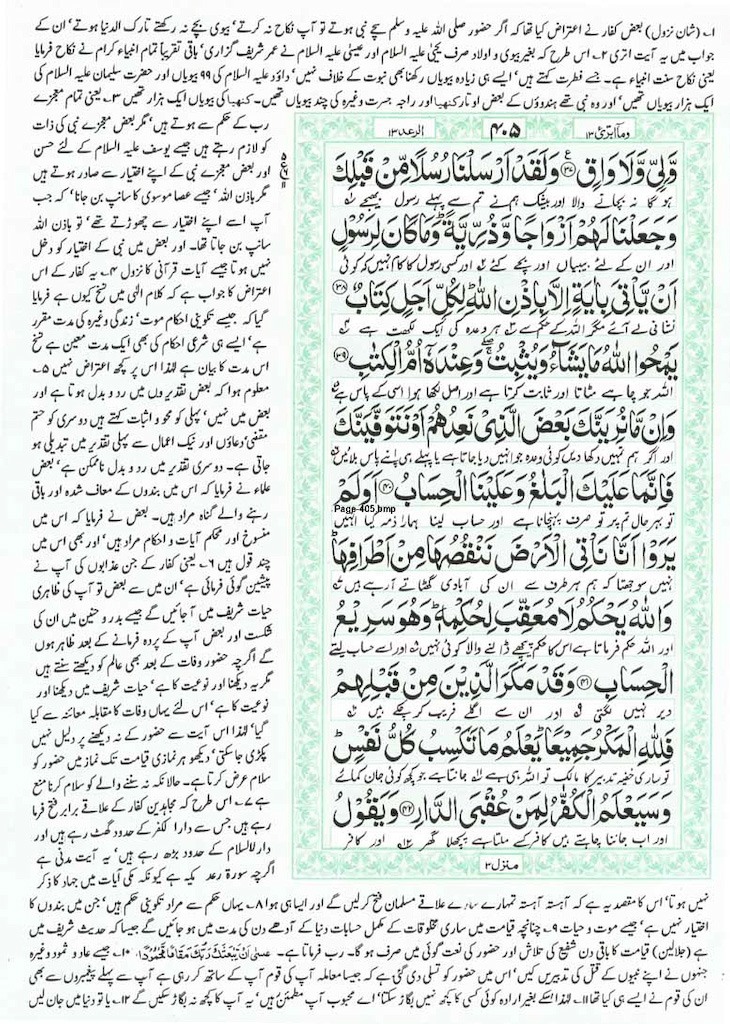 ۱؎ (شان نزول) بعض کفار نے اعتراض کیا تھا کہ اگر حضور صلی اللہ علیہ وسلم سچے نبی ہوتے تو آپ نکاح نہ کرتے، بیوی بچے نہ رکھتے تارک الدنیا ہوتے، ان کے
جواب میں یہ آیت اتری ۲؎ اس طرح کہ بغیر بیوی و اولاد صرف یحییٰ علیہ السلام اور عیسیٰ علیہ السلام نے عمر شریف گزاری، باقی تقریباً تمام انبیاء کرام نے نکاح فرمایا
یعنی نکاح سنت انبیاء ہے۔ جسے فطرت کہتے ہیں، ایسے ہی زیادہ بیویاں رکھنا بھی نبوت کے خلاف نہیں، داؤد علیہ السلام کی ۹۹ بیویاں اور حضرت سلیمان علیہ السلام کی
ایک ہزار بیویاں تھیں، اور وہ نبی تھے ہندوؤں کے بعض اوتار کنھیا اور راجہ جسرت وغیرہ کی چند بیویاں تھیں۔ کنھیا کی بیویاں ایک ہزار تھیں ۳؎ یعنی تمام معجزے
رب کے حکم سے ہوتے ہیں، مگر بعض معجزے نبی کی ذات
کو لازم رہتے ہیں جیسے یوسف علیہ السلام کے لئے حسن
اور بعض معجزے نبی کے اپنے اختیار سے صادر ہوتے ہیں
مگر باذن اللہ، جیسے عصا موسوی کا سانپ بن جانا، کہ جب
آپ اسے اپنے اختیار سے چھوڑتے تھے، تو باذن اللہ
سانپ بن جاتا تھا۔ اور بعض میں نبی کے اختیار کو دخل
نہیں ہوتا جیسے آیات قرآنی کا نزول ۴؎ یہ کفار کے اس
اعتراض کا جواب ہے کہ کلام الٰہی میں نسخ کیوں ہے فرمایا
گیا کہ جیسے تکوینی احکام موت، زندگی وغیرہ کی مدت مقرر
ہے، ایسے ہی شرعی احکام کی بھی ایک مدت معین ہے نسخ
اس مدت کا بیان ہے لہٰذا اس پر کچھ اعتراض نہیں ۵؎
معلوم ہوا کہ بعض تقدیروں میں رد و بدل ہوتا ہے اور
بعض میں نہیں، پہلی کو محو و اثبات کہتے ہیں دوسری کو حتم
مقضی، دعاؤں اور نیک اعمال سے پہلی تقدیر میں تبدیلی ہو
جاتی ہے۔ دوسری تقدیر میں رد و بدل ناممکن ہے، بعض
علماء نے فرمایا کہ اس میں بندوں کے معاف شدہ اور باقی
رہنے والے گناہ مراد ہیں۔ بعض نے فرمایا کہ اس میں
منسوخ اور محکم آیات و احکام مراد ہیں، اور بھی اس میں
چند قول ہیں ۶؎ یعنی کفار کے جن عذابوں کی آپ نے
پیشین گوئی فرمائی ہے، ان میں سے بعض تو آپ کی ظاہری
حیات شریف میں آ جائیں گے جیسے بدر و حنین میں ان کی
شکست اور بعض آپ کے پردہ فرمانے کے بعد ظاہر ہوں
گے اگرچہ حضور وفات کے بعد بھی عالم کو دیکھتے سنتے ہیں
مگر یہ دیکھنا اور نوعیت کا ہے، حیات شریف میں دیکھنا اور
نوعیت کا ہے، اس لئے یہاں وفات کا مقابلہ معائنہ سے کیا
گیا، لہٰذا اس آیت سے حضور کے نہ دیکھنے پر دلیل نہیں
پکڑی جا سکتی، دیکھو ہر نمازی قیامت تک نماز میں حضور کو
سلام عرض کرتا ہے۔ حالانکہ نہ سننے والے کو سلام کرنا منع
ہے ۷؎ اس طرح کہ مجاہدین کفار کے علاقے برابر فتح فرما
رہے ہیں جس سے دار الکفر کے حدود گھٹ رہے ہیں اور
دار الاسلام کے حدود بڑھ رہے ہیں، یہ آیت مدنی ہے
اگرچہ سورۃ رعد مکیہ ہے کیونکہ مکی آیات میں جہاد کا ذکر
وما ابرئ ۱۳
۴۰۵
الرعد ۱۳
وَّلِيٍّ وَّلَا وَاقٍ ﴿۳۷﴾ وَلَقَدْ اَرْسَلْنَا رُسُلًا مِّنْ قَبْلِكَ
ہو گا نہ بچانے والا اور بیشک ہم نے تم سے پہلے رسول بھیجے
وَجَعَلْنَا لَهُمْ اَزْوَاجًا وَّذُرِّيَّةً ؕ وَمَا كَانَ لِرَسُوْلٍ
اور ان کے لئے بیبیاں اور بچے کئے اور کسی رسول کا کام نہیں کہ کوئی
اَنْ يَّاْتِيَ بِاٰيَةٍ اِلَّا بِاِذْنِ اللّٰهِ ؕ لِكُلِّ اَجَلٍ كِتَابٌ ﴿۳۸﴾
نشانی لے آئے مگر اللہ کے حکم سے ہر وعدہ کی ایک لکھت ہے
يَمْحُوا اللّٰهُ مَا يَشَآءُ وَيُثْبِتُ ۚ وَعِنْدَهٗٓ اُمُّ الْكِتٰبِ ﴿۳۹﴾
اللہ جو چاہے مٹاتا اور ثابت کرتا ہے اور اصل لکھا ہوا اسی کے پاس ہے
وَاِنْ مَّا نُرِيَنَّكَ بَعْضَ الَّذِيْ نَعِدُهُمْ اَوْ نَتَوَفَّيَنَّكَ
اور اگر ہم تمہیں دکھا دیں کوئی وعدہ جو انہیں دیا جاتا ہے یا پہلے ہی اپنے پاس بلائیں
فَاِنَّمَا عَلَيْكَ الْبَلٰغُ وَعَلَيْنَا الْحِسَابُ ﴿۴۰﴾ اَوَلَمْ
Page-405.bmp
تو بہر حال تم پر تو صرف پہنچانا ہے اور حساب لینا ہمارا ذمہ کیا انہیں
يَرَوْا اَنَّا نَاْتِي الْاَرْضَ نَنْقُصُهَا مِنْ اَطْرَافِهَا ؕ
نہیں سوجھتا کہ ہم ہر طرف سے ان کی آبادی گھٹاتے آ رہے ہیں
وَاللّٰهُ يَحْكُمُ لَا مُعَقِّبَ لِحُكْمِهٖ ؕ وَهُوَ سَرِيْعُ
اور اللہ حکم فرماتا ہے اس کا حکم پیچھے ڈالنے والا کوئی نہیں اور اسے حساب لیتے
الْحِسَابِ ﴿۴۱﴾ وَقَدْ مَكَرَ الَّذِيْنَ مِنْ قَبْلِهِمْ
دیر نہیں لگتی اور ان سے اگلے فریب کر چکے ہیں
فَلِلّٰهِ الْمَكْرُ جَمِيْعًا ؕ يَعْلَمُ مَا تَكْسِبُ كُلُّ نَفْسٍ ؕ
تو ساری خفیہ تدبیر کا مالک تو اللہ ہی ہے جانتا ہے جو کچھ کوئی جان کمائے
وَسَيَعْلَمُ الْكُفّٰرُ لِمَنْ عُقْبَى الدَّارِ ﴿۴۲﴾ وَيَقُوْلُ
اور اب جاننا چاہتے ہیں کافر کسے ملتا ہے پچھلا گھر اور کافر
منزل ۳
نہیں ہوتا، اس کا مقصد یہ ہے کہ آہستہ آہستہ تمہارے سارے علاقے مسلمان فتح کر لیں گے اور ایسا ہی ہوا ۸؎ یہاں حکم سے مراد تکوینی حکم ہیں، جن میں بندوں کا
اختیار نہیں ہے، جیسے موت و حیات ۹؎ چنانچہ قیامت میں ساری مخلوقات کے مکمل حسابات دنیا کے آدھے دن کی مدت میں ہو جائیں گے جیسا کہ حدیث شریف میں
ہے (جلالین) قیامت کا باقی دن شفیع کی تلاش اور حضور کی نعت گوئی میں صرف ہو گا۔ رب فرماتا ہے۔ عَسٰى اَنْ يَّبْعَثَكَ رَبُّكَ مَقَامًا مَّحْمُوْدًا ۱۰؎ جیسے عاد و ثمود وغیرہ
جنہوں نے اپنے نبیوں کے قتل کی تدبیریں کیں، اس میں حضور کو تسلی دی گئی ہے کہ جیسا معاملہ آپ کی قوم آپ کے ساتھ کر رہی ہے آپ سے پہلے پیغمبروں سے بھی
ان کی قوم نے ایسے ہی کیا تھا ۱۱؎ لہٰذا اسکے بغیر ارادہ کوئی کسی کا کچھ نہیں بگاڑ سکتا، اے محبوب آپ مطمئن رہیں، یہ آپ کا کچھ نہ بگاڑ سکیں گے ۱۲؎ یا تو دنیا میں جان لیں